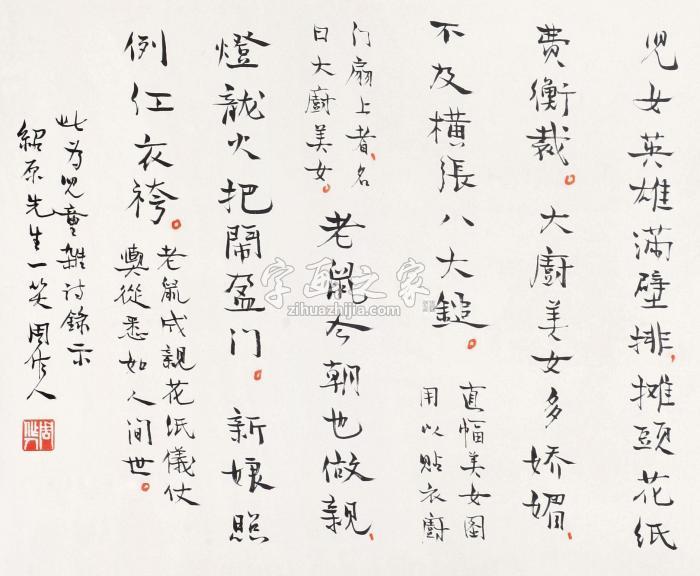 兒女英雄滿壁排、攤頭花紙
費衡裁。大廚美女多嬌媚、
不及橫張八大鎚。
直幅美女圖
用以貼衣廚
门扇上者、名
曰大廚美女。
老鼠今朝也做親、
燈龍火把鬧盈门。新娘照
例红衣袴。
老鼠成親花紙儀仗
輿從悉如人間世。
此为兒童雜詩錄示
紹原先生一笑 周作人
字画之家
zihuazhijia.com